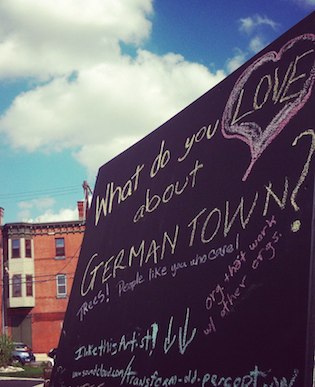 What do you LOVE
about
GERMANTOWN?
TREES! People like you who care!
org. that work
w/ other orgs.
I like this Artist! ↓↓
www.soundcloud.com/transform-old-percept